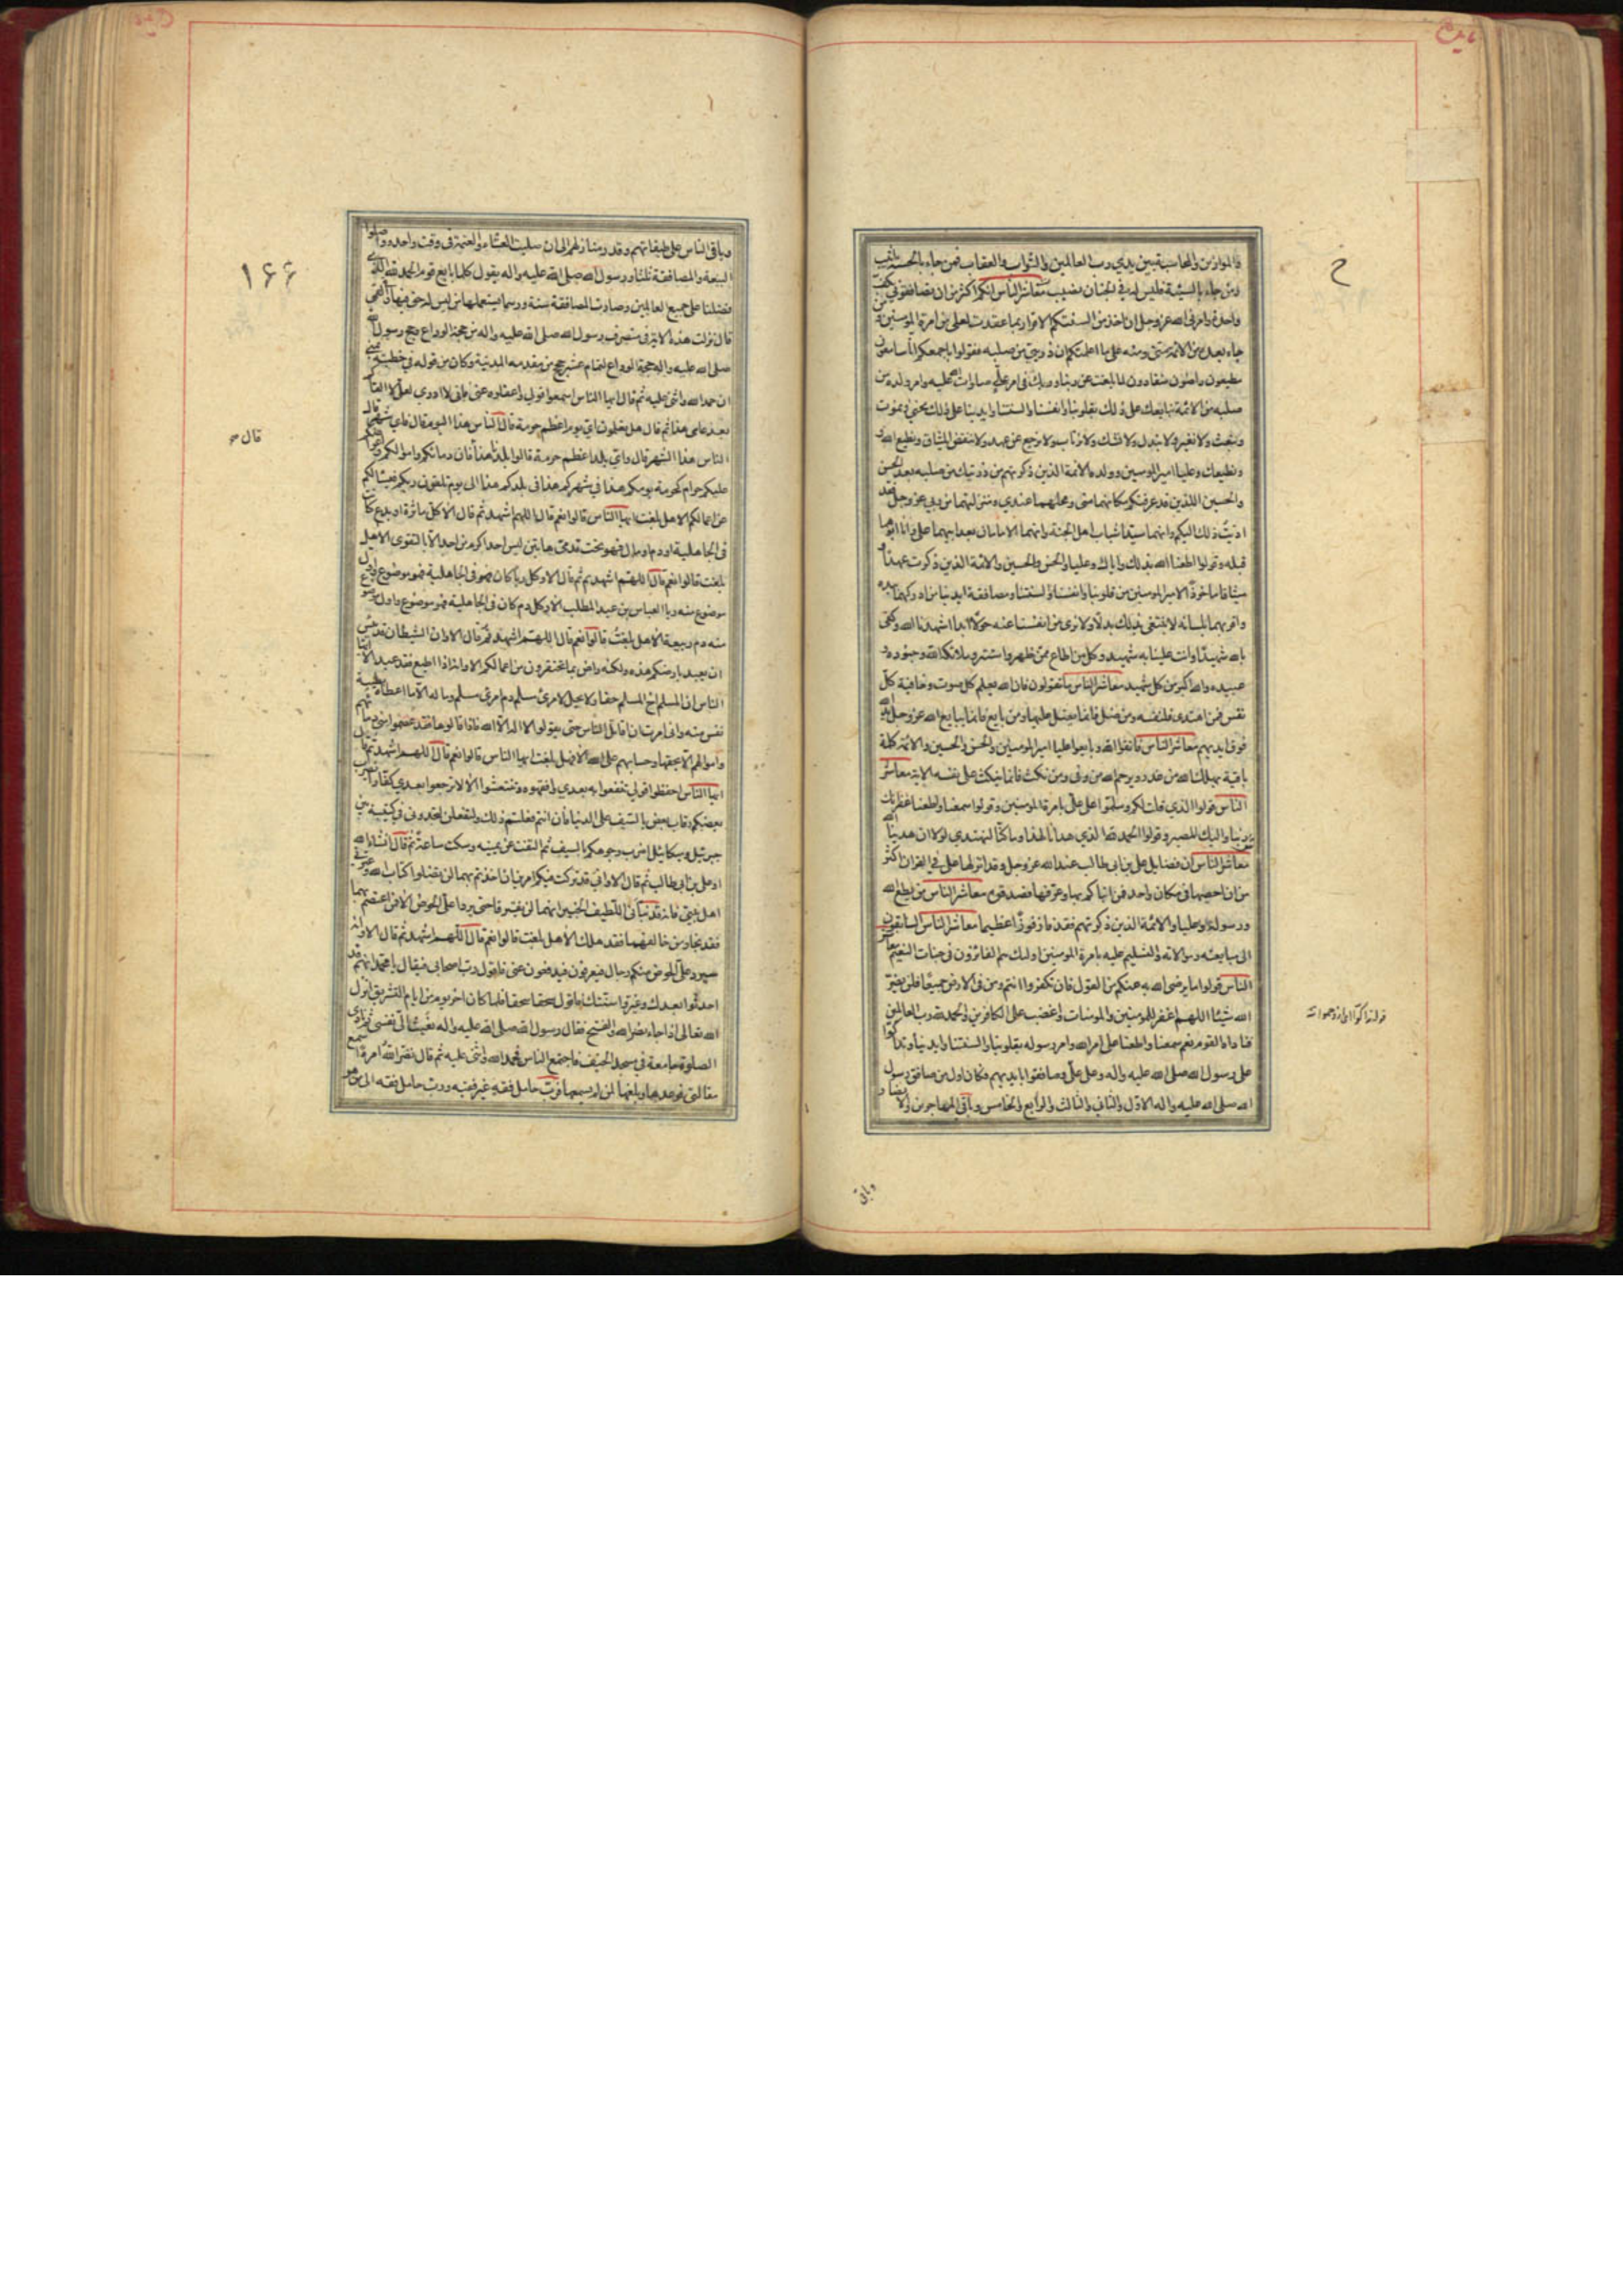 والموازين والمحاسبة بين يدي رب العالمين والثواب والعقاب فمن جاء بالحسنة اثيب
ومن جاء بالسيئة فليس له في الجنان نصيب معاشر الناس انكم اكثر من ان تصافقوني بكف
واحدة وامرني الله عز وجل ان اخذ من السنتكم الاقرار بما عقدت لعلي من امرة المومنين و
جاء بعده من الائمة مني ومنه على ما اعلمتكم ان ذريتي من صلبه فقولوا باجمعكم انا سامعون
مطيعون راضون منقادون لما بلغت عن ربنا وربك في امر علي صلوات الله عليه وامر ولده من
صلبه من الائمة نبايعك على ذلك بقلوبنا وانفسنا والسنتنا وايدينا على ذلك نحيي ونموت
ونبعث ولا نغير ولا نبدل ولا نشك ولا نرتاب ولا نرجع عن عهد ولا ننقض الميثاق ونطيع الله
ونطيعك وعليا امير المومنين وولده الائمة الذين ذكرتهم من ذريتك من صلبه بعد الحسن
والحسين اللذين قد عرفتكم مكانهما مني ومحلهما عندي ومنزلتهما من ربي عز وجل فقد
اديت ذلك اليكم وانهما سيدا شباب اهل الجنة وانهما الامامان بعد ابيهما علي وانا ابوهما
قبله وقولوا اطعنا الله بذلك واياك وعليا والحسن والحسين والائمة الذين ذكرت عهدا
ميثاقا ماخوذا لامير المومنين من قلوبنا وانفسنا والسنتنا ومصافقة ايدينا من ادركهما بيده
واقر بهما بلسانه لا نبتغي بذلك بدلا ولا نرى من انفسنا عنه حولا ابدا اشهدنا الله وكفى
بالله شهيدا وانت علينا به شهيد وكل من اطاع ممن ظهر واستتر وملائكة الله وجنوده و
عبيده والله اكبر من كل شهيد معاشر الناس ما تقولون فان الله يعلم كل صوت وخافية كل
نفس فمن اهتدى فلنفسه ومن ضل فانما يضل عليها ومن بايع فانما يبايع الله عز وجل يد الله
فوق ايديهم معاشر الناس فاتقوا الله وبايعوا عليا امير المومنين والحسن والحسين والائمة كلمة
باقية يهلك الله من غدر ويرحم الله من وفى ومن نكث فانما ينكث على نفسه الاية معاشر
الناس قولوا الذي قلت لكم وسلموا على علي بامرة المومنين وقولوا سمعنا واطعنا غفرانك
ربنا واليك المصير وقولوا الحمد لله الذي هدانا لهذا وما كنا لنهتدي لولا ان هدينا الله
معاشر الناس ان فضايل علي بن ابي طالب عند الله عز وجل وقد انزلها علي في القران اكثر
من ان احصيها في مكان واحد فمن انباكم بها وعرفها فصدقوه معاشر الناس من يطع الله
ورسوله وعليا والائمة الذين ذكرتهم فقد فاز فوزا عظيما معاشر الناس السابقون
الى مبايعته وموالاته والتسليم عليه بامرة المومنين اولئك هم الفائزون في جنات النعيم معاشر
الناس قولوا ما يرضى الله به عنكم من القول فان تكفروا انتم ومن في الارض جميعا فلن يضر
الله شيئا اللهم اغفر للمومنين والمومنات واغضب على الكافرين والحمد لله رب العالمين
فناداه القوم نعم سمعنا واطعنا على امر الله وامر رسوله بقلوبنا والسنتنا وايدينا وتداكوا
على رسول الله صلى الله عليه واله وعلى علي وصافقوا بايديهم فكان اول من صافق رسول
الله صلى الله عليه واله الاول والثاني والثالث والرابع والخامس وباقي المهاجرين والانصار و
وباقي
وباقي الناس على طبقاتهم وقدر منازلهم الى ان صليت العشاء والعتمة في وقت واحد وواصلوا
البيعة والمصافقة ثلثا ورسول الله صلى الله عليه واله يقول كلما بايع قوم الحمد لله الذي
فضلنا على جميع العالمين وصارت المصافقة سنة ورسما يستعملها من ليس له حق فيها القمي
قال نزلت هذه الاية في منصرف رسول الله صلى الله عليه واله من حجة الوداع وحج رسول الله
صلى الله عليه واله حجة الوداع لتمام عشر حجج من مقدمه المدينة وكان من قوله في خطبته بمنى
ان حمد الله واثنى عليه ثم قال ايها الناس اسمعوا قولي واعقلوه عني فاني لا ادري لعلي لا القاكم
بعد عامي هذا ثم قال هل تعلمون اي يوم اعظم حرمة قال الناس هذا اليوم قال فاي شهر قال
الناس هذا الشهر قال واي بلد اعظم حرمة قالوا بلدنا هذا قال فان دماءكم واموالكم واعراضكم
عليكم حرام كحرمة يومكم هذا في شهركم هذا في بلدكم هذا الى يوم تلقون ربكم فيسئلكم
عن اعمالكم الا هل بلغت ايها الناس قالوا نعم قال اللهم اشهد ثم قال الا كل ماثرة او بدع كانت
في الجاهلية او دم او مال فهو تحت قدمي هاتين ليس احد اكرم من احد الا بالتقوى الا هل
بلغت قالوا نعم قال اللهم اشهد ثم قال الا وكل ربا كان في الجاهلية فهو موضوع واول
موضوع منه ربا العباس بن عبد المطلب الا وكل دم كان في الجاهلية فهو موضوع واول موضوع
منه دم ربيعة الا هل بلغت قالوا نعم قال اللهم اشهد ثم قال الا وان الشيطان قد يئس
ان يعبد بارضكم هذه ولكنه راض بما تحتقرون من اعمالكم الا وانه اذا اطيع فقد عبد الا ايها
الناس ان المسلم اخ المسلم حقا ولا يحل لامرئ مسلم دم امرئ مسلم وماله الا ما اعطاه بطيبة
نفس منه واني امرت ان اقاتل الناس حتى يقولوا لا اله الا الله فاذا قالوها فقد عصموا مني دماءهم
واموالهم الا بحقها وحسابهم على الله الا فهل بلغت ايها الناس قالوا نعم قال اللهم اشهد ثم قال
ايها الناس احفظوا قولي تنتفعوا به بعدي وافهموه تنتعشوا الا لا ترجعوا بعدي كفارا يضرب
بعضكم رقاب بعض بالسيف على الدنيا فان انتم فعلتم ذلك ولتفعلن لتجدوني في كتيبة بين
جبرئيل وميكائيل اضرب وجوهكم بالسيف ثم التفت عن يمينه وسكت ساعة ثم قال انشاء الله
او علي بن ابي طالب ثم قال الا واني قد تركت فيكم امرين ان اخذتم بهما لن تضلوا كتاب الله وعترتي
اهل بيتي فانه قد نبأني اللطيف الخبير انهما لن يفترقا حتى يردا علي الحوض الا فمن اعتصم بهما
فقد نجا ومن خالفهما فقد هلك الا هل بلغت قالوا نعم قال اللهم اشهد ثم قال الا وانه
سيرد علي الحوض منكم رجال فيعرفون فيدفعون عني فاقول رب اصحابي فيقال يا محمد انهم قد
احدثوا بعدك وغيروا سنتك فاقول سحقا سحقا فلما كان اخر يوم من ايام التشريق انزل
الله تعالى اذا جاء نصر الله والفتح فقال رسول الله صلى الله عليه واله نعيت الي نفسي ثم نادى
الصلوة جامعة في مسجد الخيف فاجتمع الناس فحمد الله واثنى عليه ثم قال نضر الله امرءا سمع
مقالتي فوعاها وبلغها لمن لم يسمعها فرب حامل فقه غير فقيه ورب حامل فقه الى من هو
۱۶۶